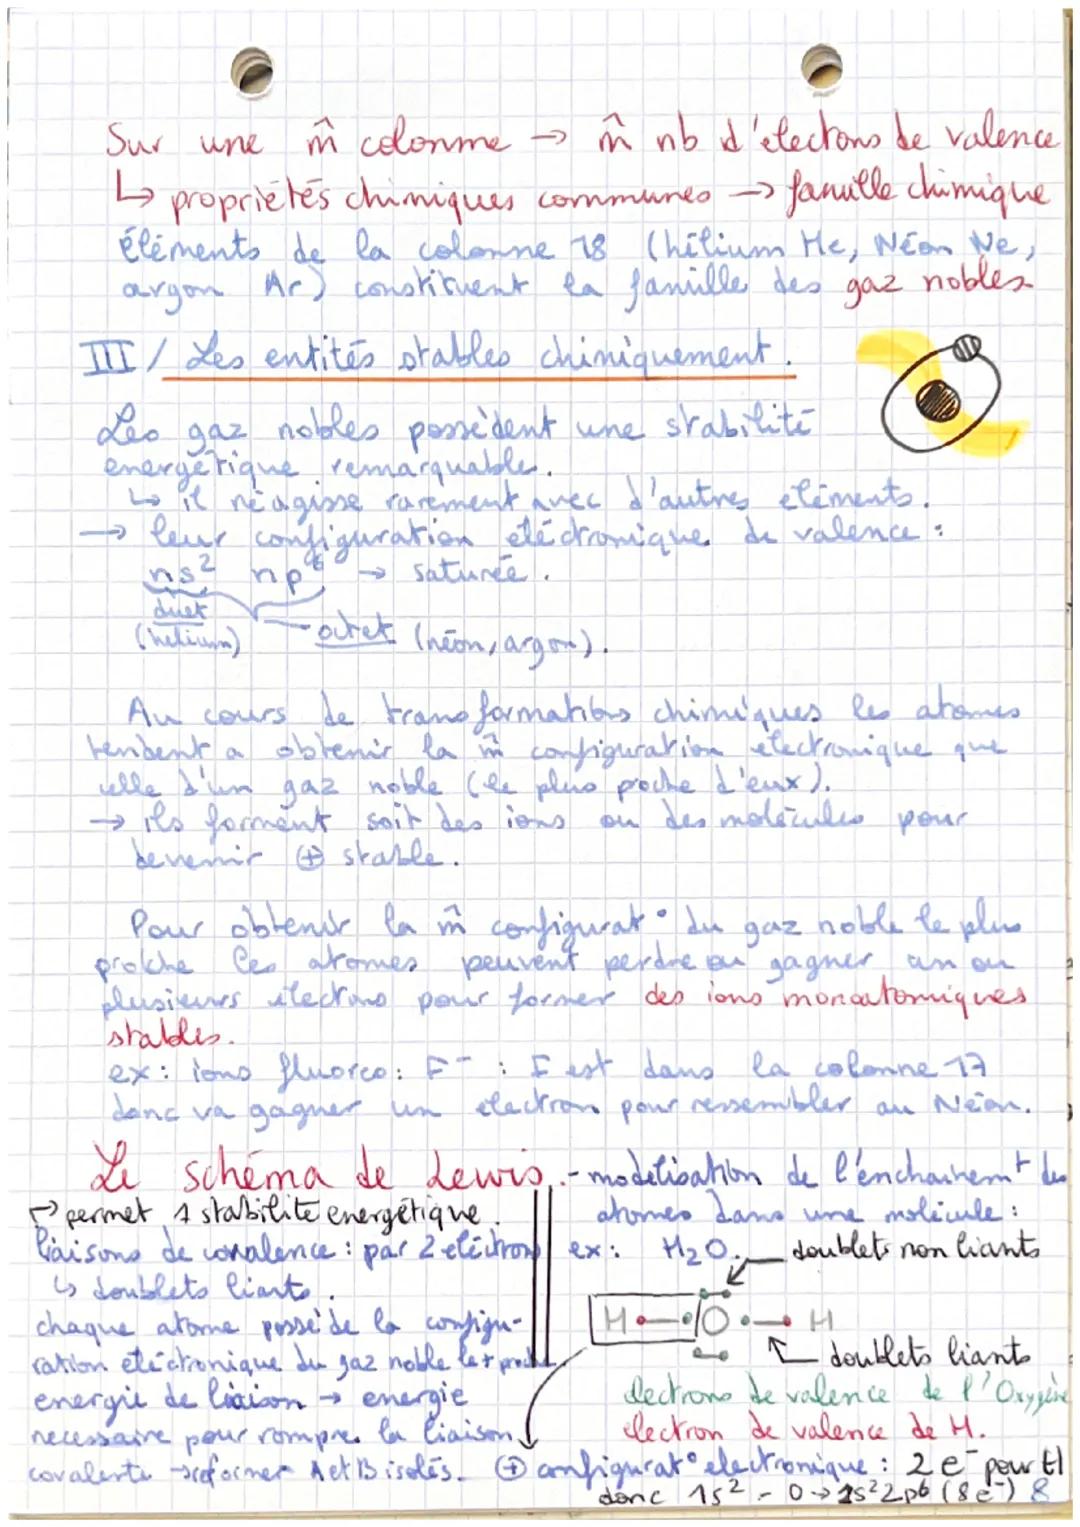 Sur une m̂ colonne → m̂ nb d'électons de valence
↳ propriétés chimiques communes → famille chimique
Éléments de la colonne 18 (hélium He, Néon Ne,
argon Ar) constituent la famille des gaz nobles
III / Les entités stables chimiquement.
Les gaz nobles possèdent une stabilité
énergétique remarquable.
↳ il réagisse rarement avec d'autres éléments.
→ leur configuration éléctronique de valence :
ns² np⁶ → saturée.
duet
(helium)
octet (néon, argon).
Au cours de transformations chimiques les atomes
tendent a obtenir la m̂ configuration électronique que
celle d'un gaz noble (le plus poche d'eux).
→ ils forment soit des ions ou des molécules pour
devenir ⊕ stable.
Pour obtenir la m̂ configurat° du gaz noble le plus
prokche les atomes peuvent perdre ou gagner un ou
plusieurs électrons pour former des ions monoatomiques
stables.
ex : ions fluoreo : F⁻ : F est dans la colonne 17
donc va gagner un électron pour ressembler au Néon.
Le schéma de Lewis.
↱ permet 1 stabilité energétique.
liaisons de covalence : par 2 eléctrons
↳ doublets liants.
chaque atome possède la configu-
ration eléctronique du gaz noble le + proche
energie de liaison → energie
necessaire pour rompre la liaison
covalente → reformer A et B isolés.
- modélisation de l'enchainem^t des
atomes dans une molécule :
ex : H₂O.
doublets non liants
H O H
doublets liants
électrons de valence de l'Oxygène
électron de valence de H.
⊕ configurat° electronique : 2 e⁻ pour H
donc 1s² - O → 2s² 2p⁶ (8 e⁻) 8